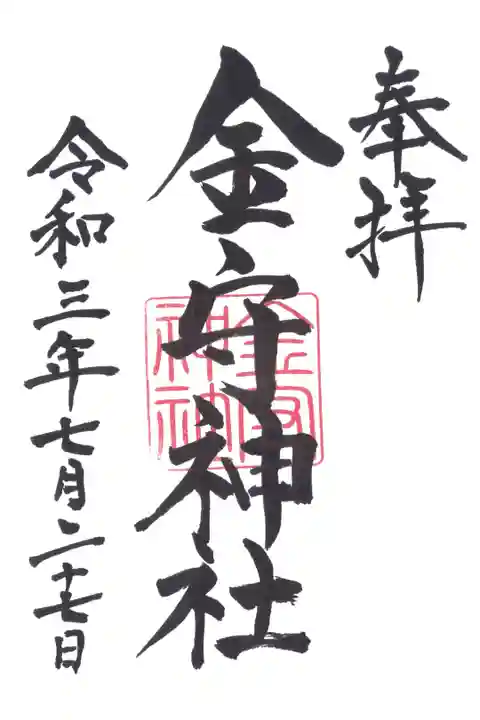 奉拝
金守神社
金守
神社
令和三年七月二十七日